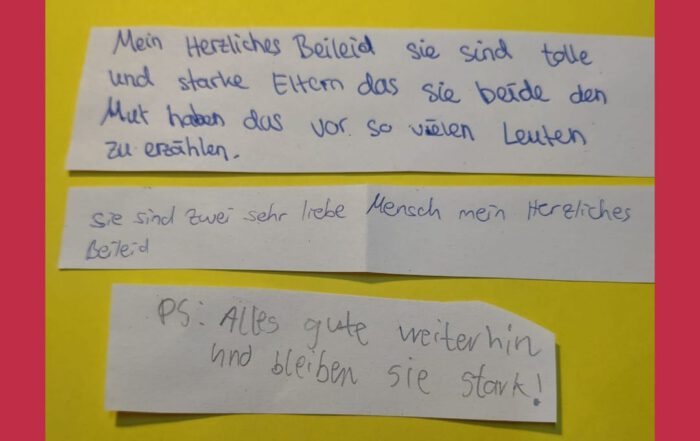 Mein Herzliches Beileid sie sind tolle
und starke Eltern das sie beide den
Mut haben das vor so vielen Leuten
zu erzählen.
Sie sind zwei sehr liebe Mensch mein Herzliches
Beileid
PS: Alles gute weiterhin
und bleiben sie stark!